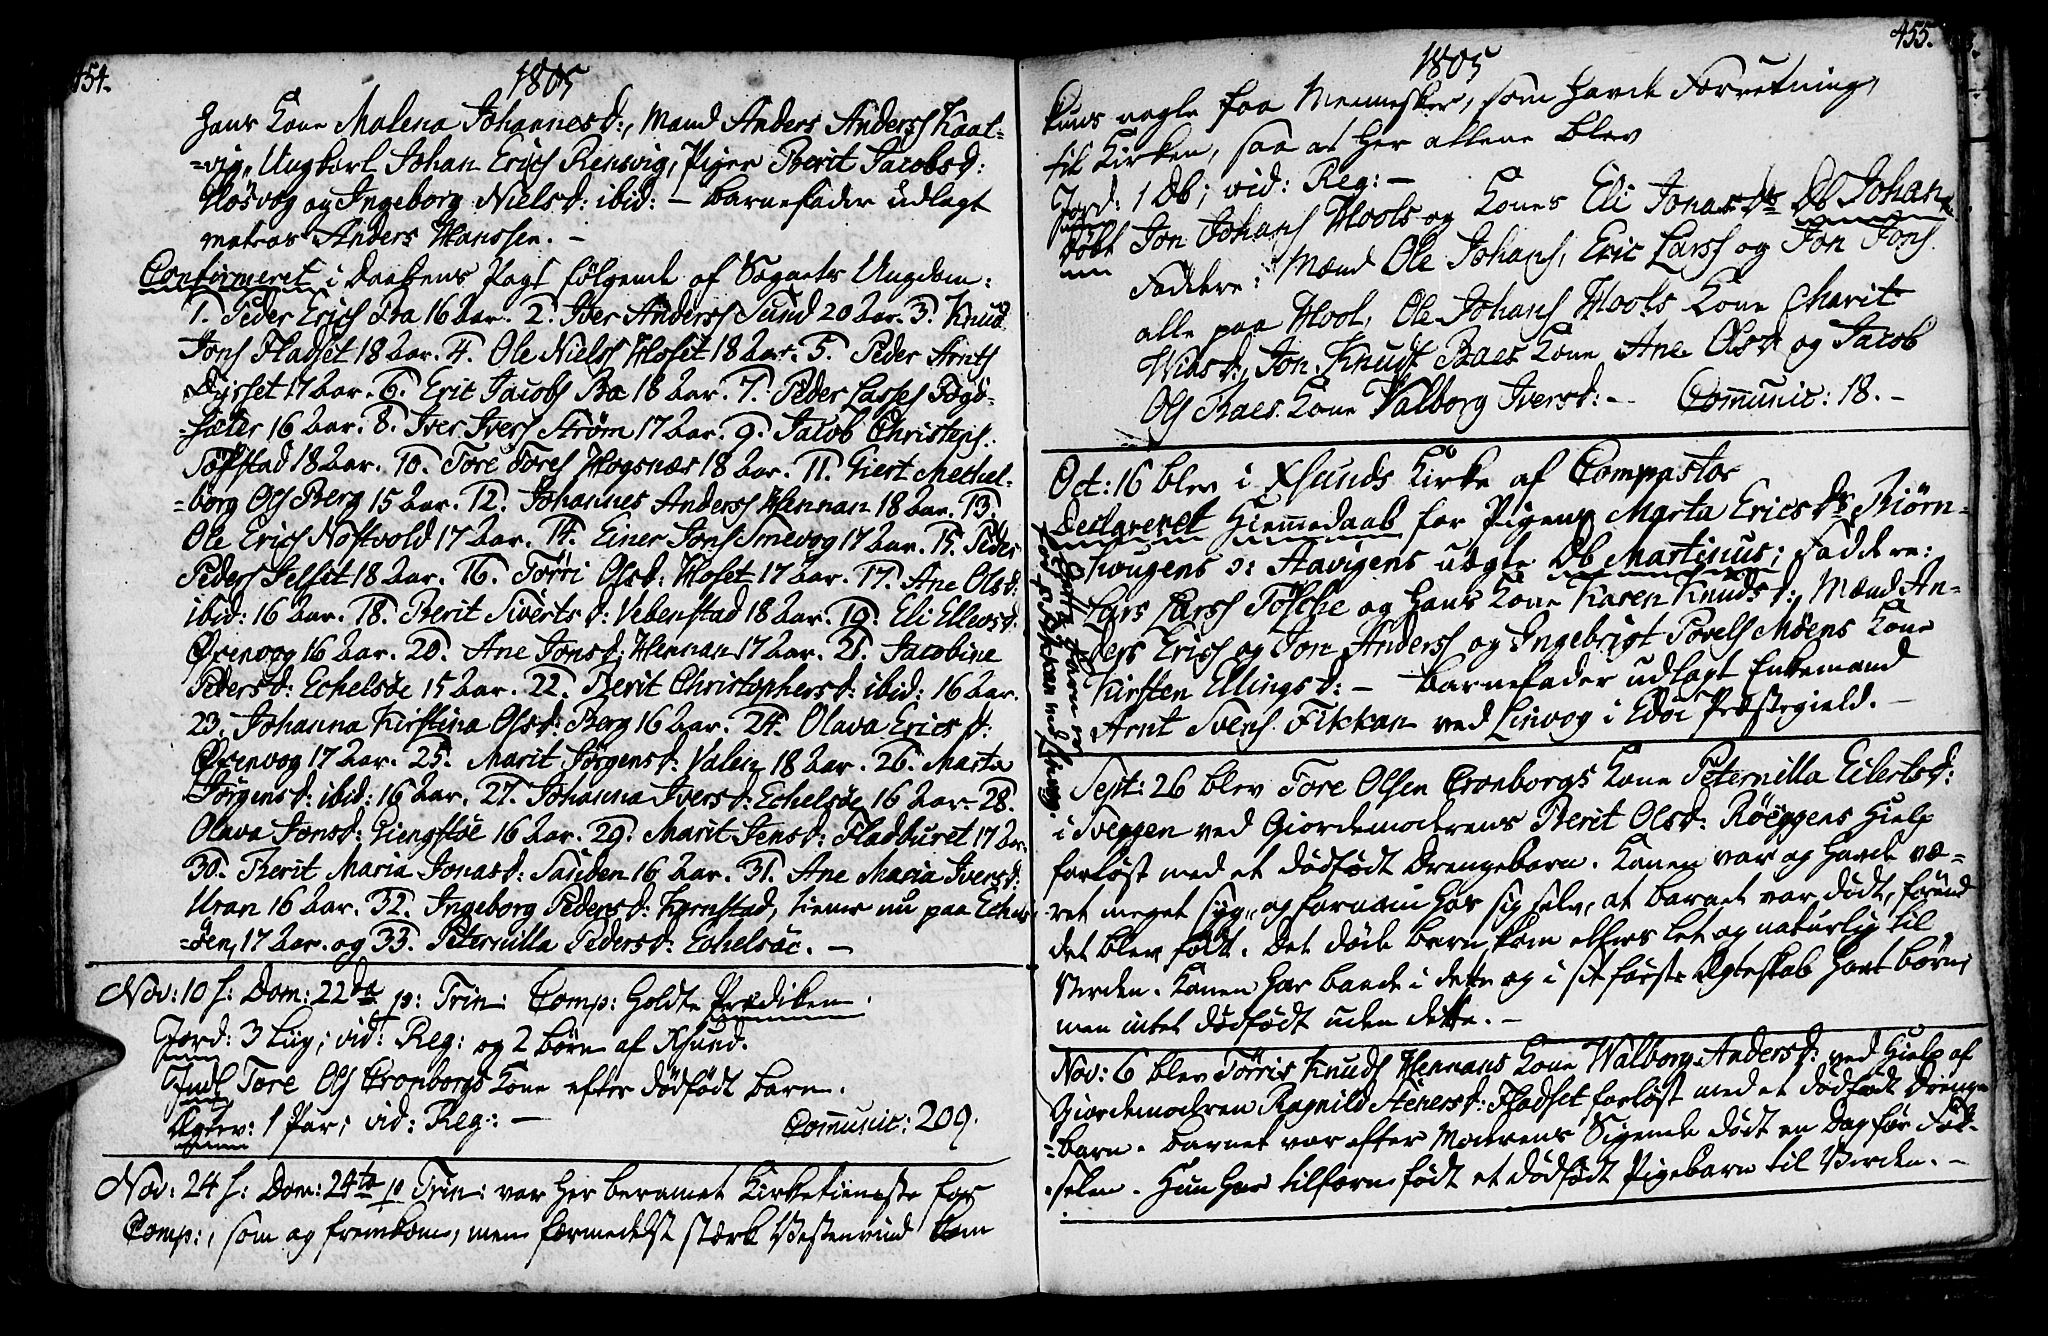 454.
1805
hans Kone Malena Johannesd:, Mand Anders Anderss Kaal-
=vig, Ungkarl Johan Erics Rensvig, Piger Berit Jacobsd:
Høsvog og Ingeborg Nielsd: ibid: – Barnefader udlagt
matros Anders Hanssen. –
Confirmeret i Daabens Pagt følgende af Sognets Ungdom:
1. Peder Erics Bra 16 Aar. 2. Iver Anderss Sund 20 Aar. 3. Knud
Jons Fladset 18 Aar. 4. Ole Niels Hoset 18 Aar. 5. Peder Arnts
Dyrset 17 Aar. 6. Eric Jacobs Ba 18 Aar. 7. Peder Lasses Bøgø-
=sæter 16 Aar. 8. Iver Ivers Strøm 17 Aar. 9. Jacob Christens
Toffstad 18 Aar. 10. Tore Tores Hogsnæs 18 Aar. 11. Giert Mechel-
=borg Ols Berg 15 Aar. 12. Johannes Anderss Hennan 18 Aar. 13.
Ole Erics Nøstvold 17 Aar. 14. Einer Jons Smevog 17 Aar. 15. Peder
Peders Selset 18 Aar. 16. Torri Olsd: Hoset 17 Aar. 17. Ane Olsd:
ibid: 16 Aar. 18. Berit Siverts d: Vebenstad 18 Aar. 19. Eli Ellevsd:
Ørenvog 16 Aar. 20. Ane Jonsd: Hennan 17 Aar. 21. Jacobine
Pedersd: Echelsøe 15 Aar. 22. Berit Christophersd: ibid: 16 Aar.
23. Johanna Kirstina Olsd: Berg 16 Aar. 24. Olava Ericsd:
Ørenvog 17 Aar. 25. Marit Jørgensd: Valen 18 Aar. 26. Marta
Jørgensd: ibid: 16 Aar. 27. Johanna Iversd: Echelsøe 16 Aar. 28.
Olava Jonsd: Giengstøe 16 Aar. 29. Marit Jensd: Fladburet 17 Aar.
30. Berit Maria Jonasd: Sanden 16 Aar. 31. Ane Maria Iversd:
Uran 16 Aar. 32. Ingeborg Pedersd: Kornstad, tiener nu paa Echel-
=søen, 17 Aar. og 33. Peternilla Pedersd: Echelsøe. –
Nov: 10 h: Dom: 22da p: Trin: Comp: holdte Prædiken.
Jord: 3 Liig; vid: Reg: og 2 børn af Xsund.
Indl Tore Ols Cronborgs Kone efter dødfødt barn.
Ægtev: 1 Par; vid: Reg: – Communic: 209.
Nov: 24 h: Dom: 24ta p Trin: var her berammet Kirketieneste for
Comp:, som og fremkom, men formedelst stærk Vestenvind kom
455.
1805
kuns nogle faa Mennesker, som havde Forretning
til Kirken, saa at her allene blev
Jord: 1 Db; vid: Reg: –
døbt Jon Johans Hools og Kones Eli Jonasdr Db Johan
Faddere: Mænd Ole Johans, Eric Larss og Jon Jons
alle paa Hool, Ole Johans Hools Kone Marit
Wibsd:, Jon Knuds Baes Kone Ane Olsd og Jacob
Ols Baes Kone Valborg Iversd: – Communic: 18. –
Oct: 16 blev i Xsunds Kirke af Compastor
declareret Hiemmedaab for Pigens Marta Ericsdr Biørn-
skougens ɔ: Aavigens uægte Db Martinus; Faddere:
Lars Larss Tøsche og hans Kone Karen Knudsd:, Mænd An-
ders Erics og Jon Anderss og Ingebrigt Povels Moens Kone
Kirsten Ellingsd: – Barnefader udlagt Enkemand
Arnt Svens. Fikkan ved Linvog i Edøe Præstegield. –
Sept: 26 blev Tore Olsen Cronborgs Kone Peternilla Eilertsd:
i Sveggen ved Giordemoderens Berit Olsd: Røeggens hielp
forløst med et dødfødt Drengebarn. Konen var og havde væ-
=ret meget syg, og fornam hos sig selv, at barnet var dødt, førend
det blev født. Det døde barn kom ellers let og naturlig til
Verden. Konen har baade i dette og i sit første Ægteskab havt børn;
men intet dødfødt uden dette. –
Nov: 6 blev Tørris Knuds Hennans Kone Walborg Andersd: ved hielp af
Giordemoderen Ragnild Stenersd: Fladset forløst med et dødfødt Drenge-
=barn. Barnet var efter Moderens Sigende dødt en Dag før Fød-
=selen. Hun har tilforn født et dødfødt Pigebarn til Verden. –